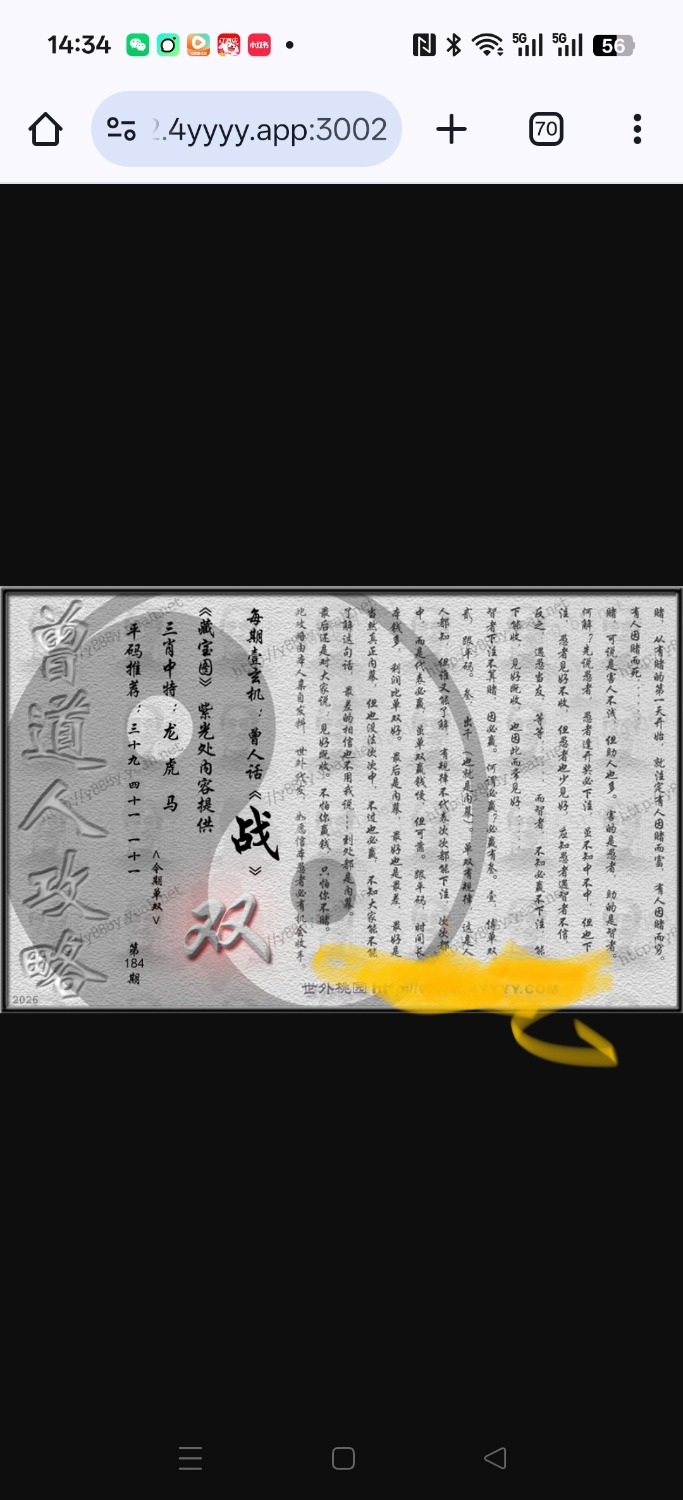 14:34
5G
5G
56
2.4yyyy.app:3002
70
赌，从有赌的第一天开始，就注定有人因赌而富，有人因赌而穷。
有人因赌而死……
赌，可说是害人不浅，但助人也多。害的是愚者，助的是智者。
何解？先说愚者，愚者逢开奖必下注，虽不知中不中，但也下
注，愚者见好不收，但愚者也少见好，应知愚者遇智者不信
反之，遇愚当友，等等……而智者，不知必赢不下注，能
下能收，见好既收，也因此而常见好……
智者下注不算赌，因必赢。何谓必赢？必赢有叁。壹，博单双
贰，跟平码。叁，出千（也就是内幕）。单双有规律，这是人
人都知，但谁又能了解，有规律不代表次次都能下注，次次都
中，而是代表必赢，虽单双赢钱慢，但可靠。跟平码，时间长
本钱多，利润比单双好。最后是内幕，最好也是最差，最好是
当然真正内幕，但也没法次次中，不过也必赢，不知大家能不能
了解这句话，最差的相信也不用我说……到处都是内幕。
最后还是对大家说，见好既收。不怕你赢钱，只怕你不赌。
此攻略由本人亲自发料，世外代发，如愿信本愚者必有机会收手。
每期壹玄机：曾人话《战》
《藏宝图》紫光处内容提供
双
三肖中特：龙 虎 马
<今期单双>
平码推荐：三十九 四十一 二十一
第184期
曾道人攻略
世外桃园
2025